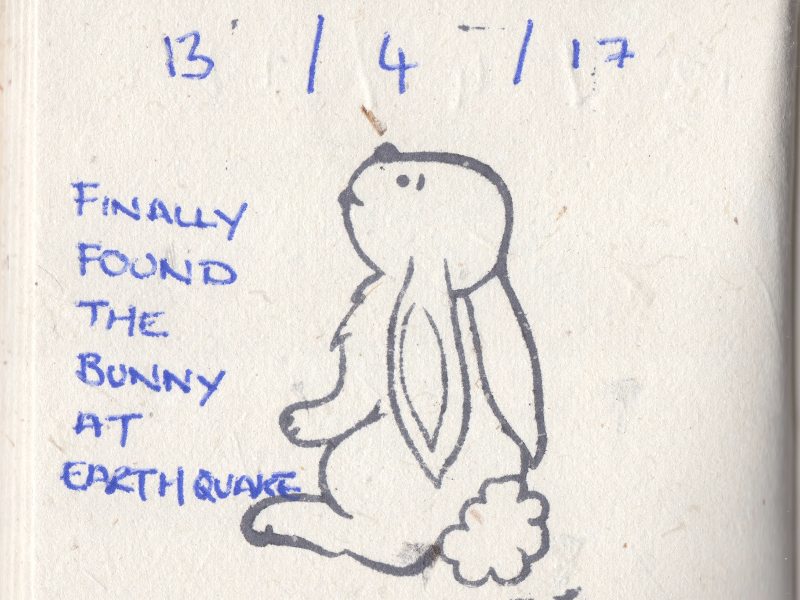 13 / 4 / 17
FINALLY
FOUND
THE
BUNNY
AT
EARTHQUAKE